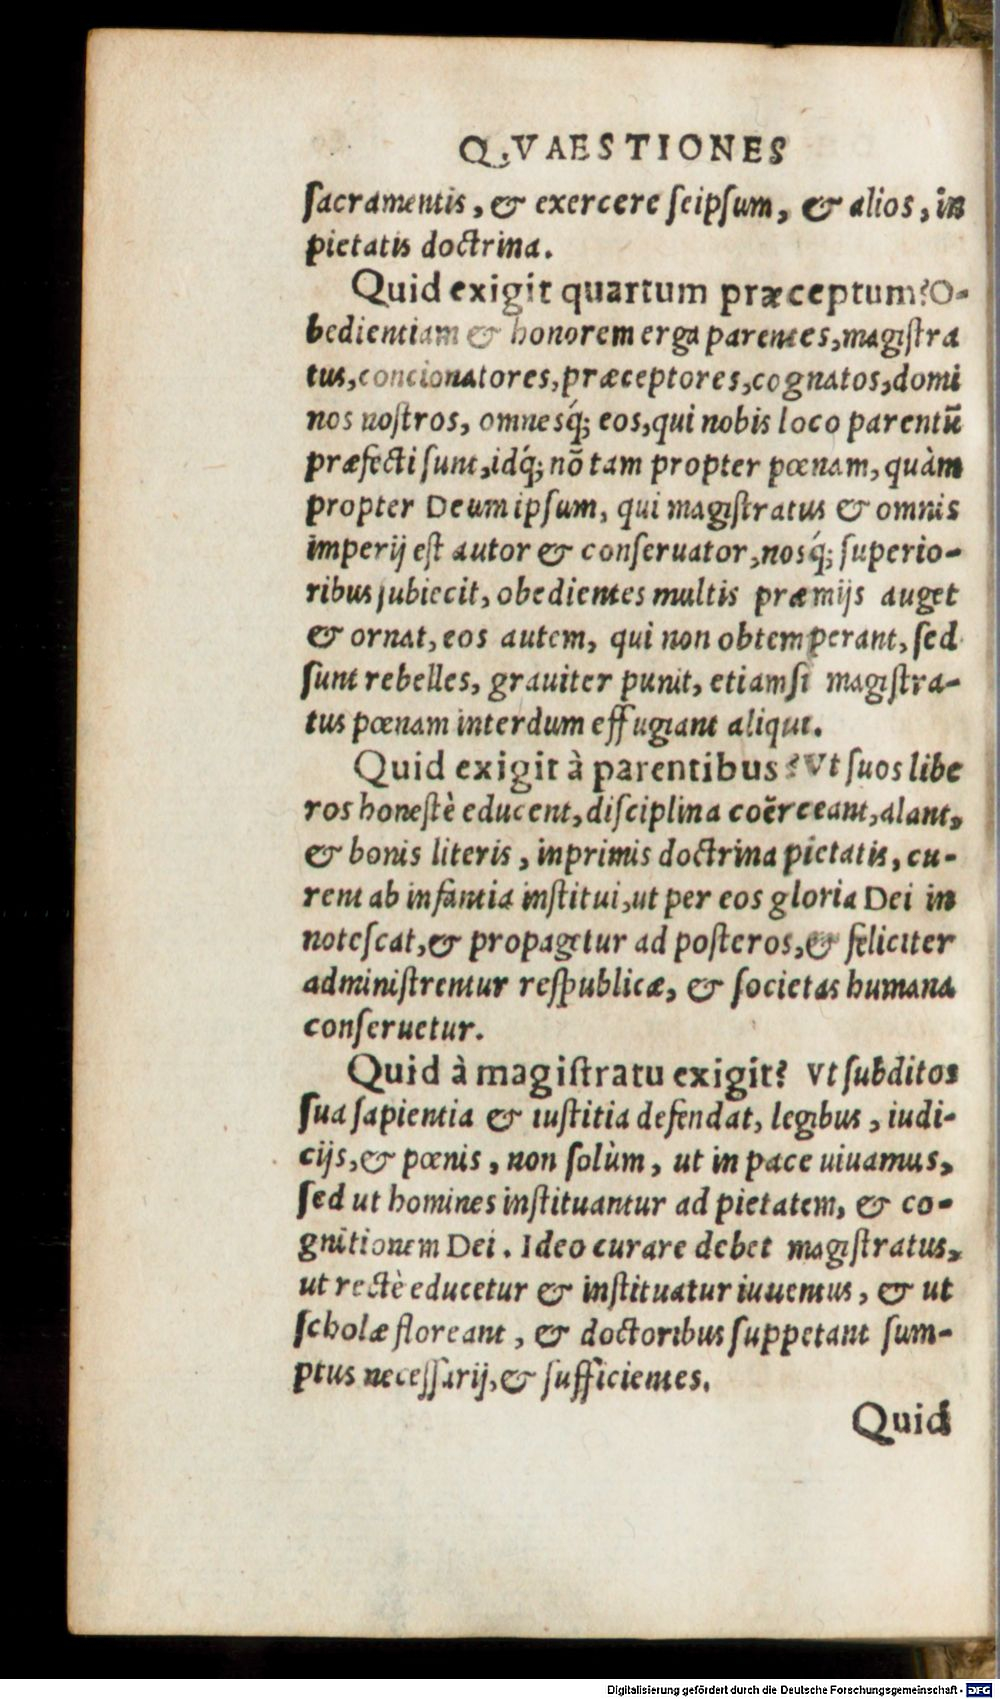 QVAESTIONES
sacramentis, & exercere seipsum, & alios, in
pietatis doctrina.
Quid exigit quartum præceptum? O-
bedientiam & honorem erga parentes, magistra
tus, concionatores, præceptores, cognatos, domi
nos nostros, omnesq́; eos, qui nobis loco parentū
præfecti sunt, idq́; nō tam propter pœnam, quàm
propter Deum ipsum, qui magistratus & omnis
imperij est autor & conseruator, nosq́; superio-
ribus subiecit, obedientes multis præmijs auget
& ornat, eos autem, qui non obtemperant, sed
sunt rebelles, grauiter punit, etiamsi magistra-
tus pœnam interdum effugiant aliqui.
Quid exigit à parentibus? Vt suos libe
ros honestè educent, disciplina coërceant, alant,
& bonis literis, inprimis doctrina pietatis, cu-
rent ab infantia institui, ut per eos gloria Dei in
notescat, & propagetur ad posteros, & feliciter
administrentur respublicæ, & societas humana
conseruetur.
Quid à magistratu exigit? Vt subditos
sua sapientia & iustitia defendat, legibus, iudi-
cijs, & pœnis, non solùm, ut in pace uiuamus,
sed ut homines instituantur ad pietatem, & co-
gnitionem Dei. Ideo curare debet magistratus,
ut rectè educetur & instituatur iuuentus, & ut
scholæ floreant, & doctoribus suppetant sum-
ptus necessarij, & sufficientes.
Quid
Digitalisierung gefördert durch die Deutsche Forschungsgemeinschaft - DFG